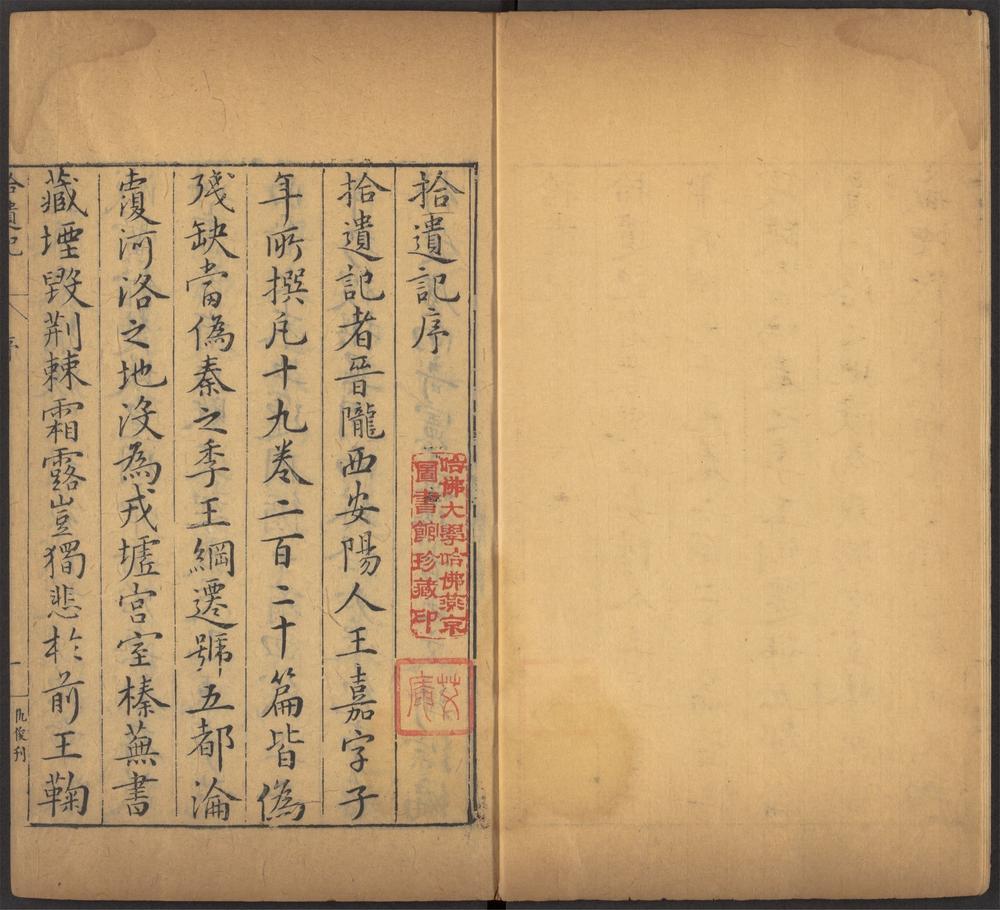 拾遺記序
拾遺記者晉隴西安陽人王嘉字子
年所撰凡十九卷二百二十篇皆偽
殘缺當偽秦之季王綱遷號五都淪
覆河洛之地沒為戎墟宮室榛蕪書
藏堙毀荆棘霜露豈獨悲於前王鞠
拾遺記
序
一
仇俊刋
哈佛大學哈佛燕京
圖書館珍藏印